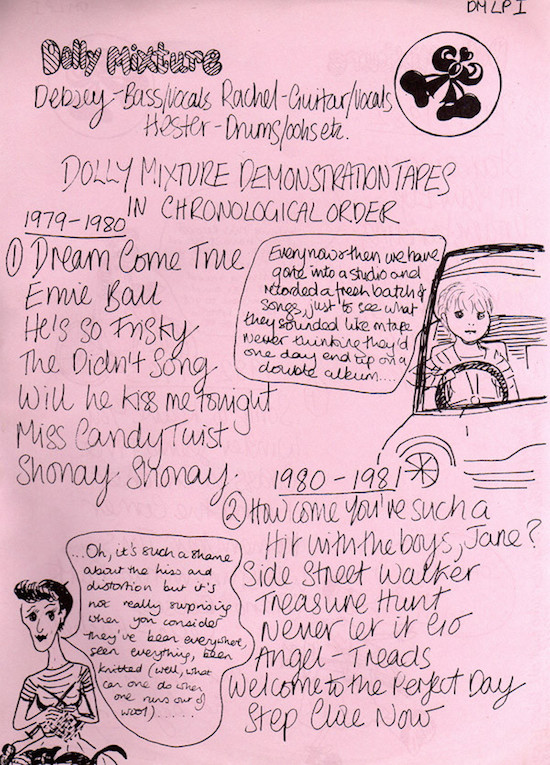 DMLP I
Dolly Mixture
Debsey-Bass/Vocals Rachel-Guitar/Vocals
Hester-Drums/oohs etc.
DOLLY MIXTURE DEMONSTRATION TAPES
IN CHRONOLOGICAL ORDER
1979-1980
① Dream Come True
Ernie Ball
He's So Frisky
The Didn't Song
Will he kiss me tonight
Miss Candy Twist
Shonay Shonay.
Every now & then we have
gone into a studio and
recorded a fresh batch of
songs, just to see what
they sounded like on tape
never thinking they'd
one day end up on a
double album....
1980-1981
② How come you've such a
Hit with the boys, Jane?
Side Street Walker
Treasure Hunt
Never let it Go
Angel-Treads
Welcome to the Perfect Day
Step Close Now
...Oh, it's such a shame
about the hiss and
distortion but it's
not really surprising
when you consider
they've been everywhere,
seen everything, been
knitted (well, what
can one do when
one runs out of
wool)......